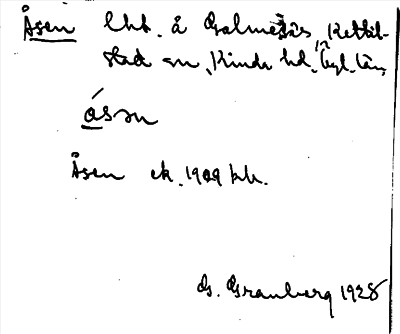 Åsen lht. å Galmesås, Kettil-
stad sn, Kinda hd, Ögl. län,
åsən
Åsen ek. 1909 hk.
G. Granberg 1928